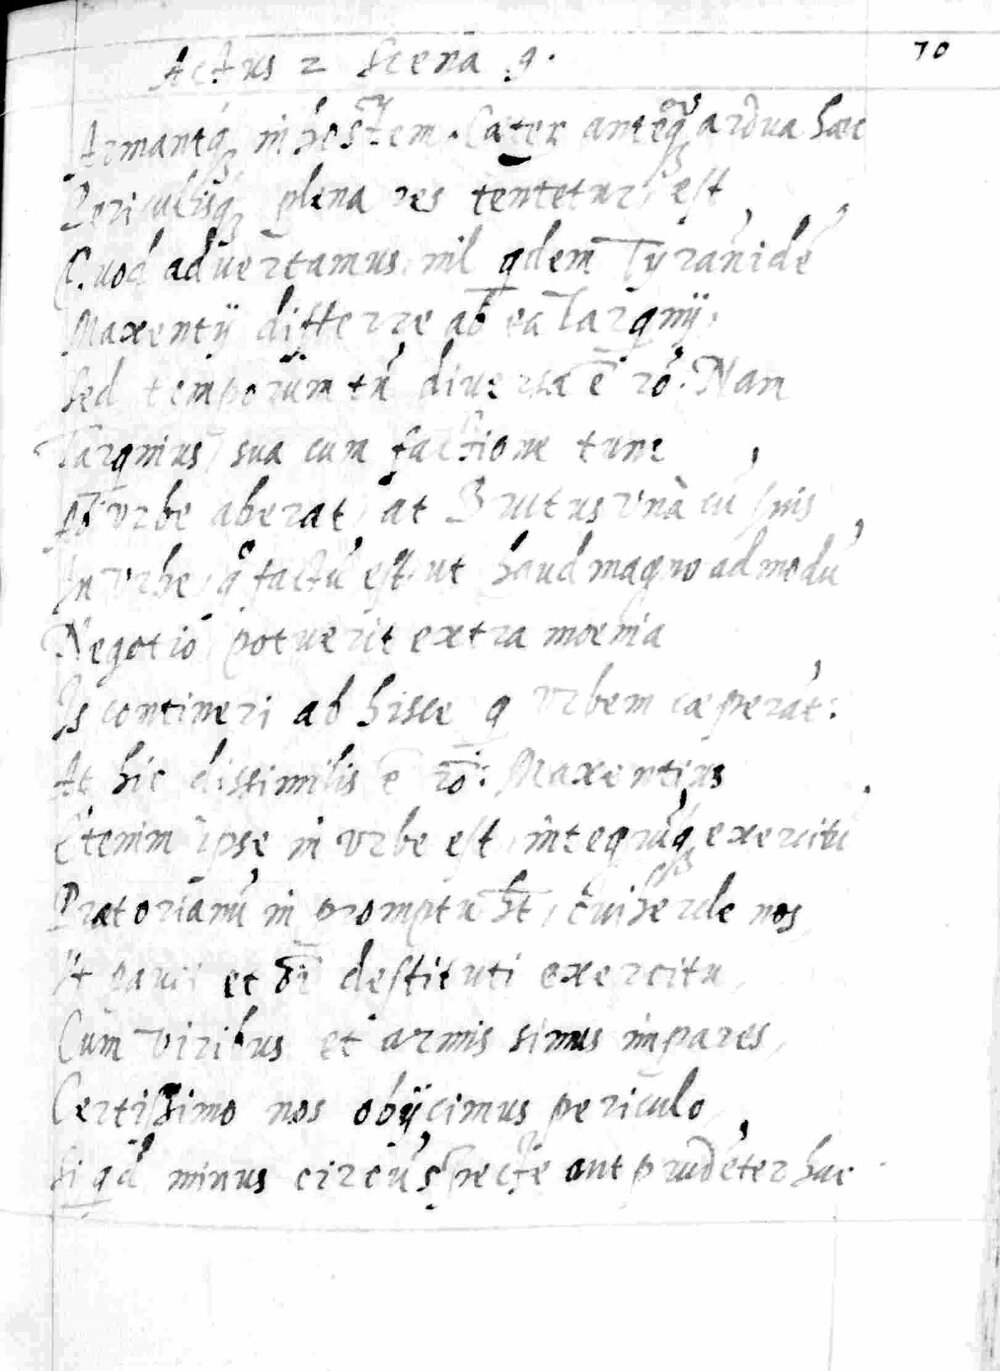 Actus 2 Scena 9.
70
Armantq; in hostem. Cæter anteq̃ ardua hæc
Periculisq; plena res tentetur, est
Quod advertamus, nil qdem Tyrānidē
Maxentÿ differre ab ea Tarqnÿ,
Sed temporum tñ diversa ē rō. Nam
Tarqnius, sua cum factione tunc
Ab vrbe aberat, at Brutus vnà cū suis
In vrbe, q̃ factū est, ut haud magno admodū
Negotio potuerit extra moenia
Is contineri ab hisce q vrbem cæperāt:
At hic dissimilis ē rō: Maxentius
Etenim ipse in vrbe est, integrūq; exercitū
Prætorianū in promptu ht̄, cui hercle nos,
Ut pauci et destituti exercitu,
Cum viribus et armis simus impares,
Certissimo nos obÿcimus periculo,
Si qd minus circūspecte aut prudēter hac